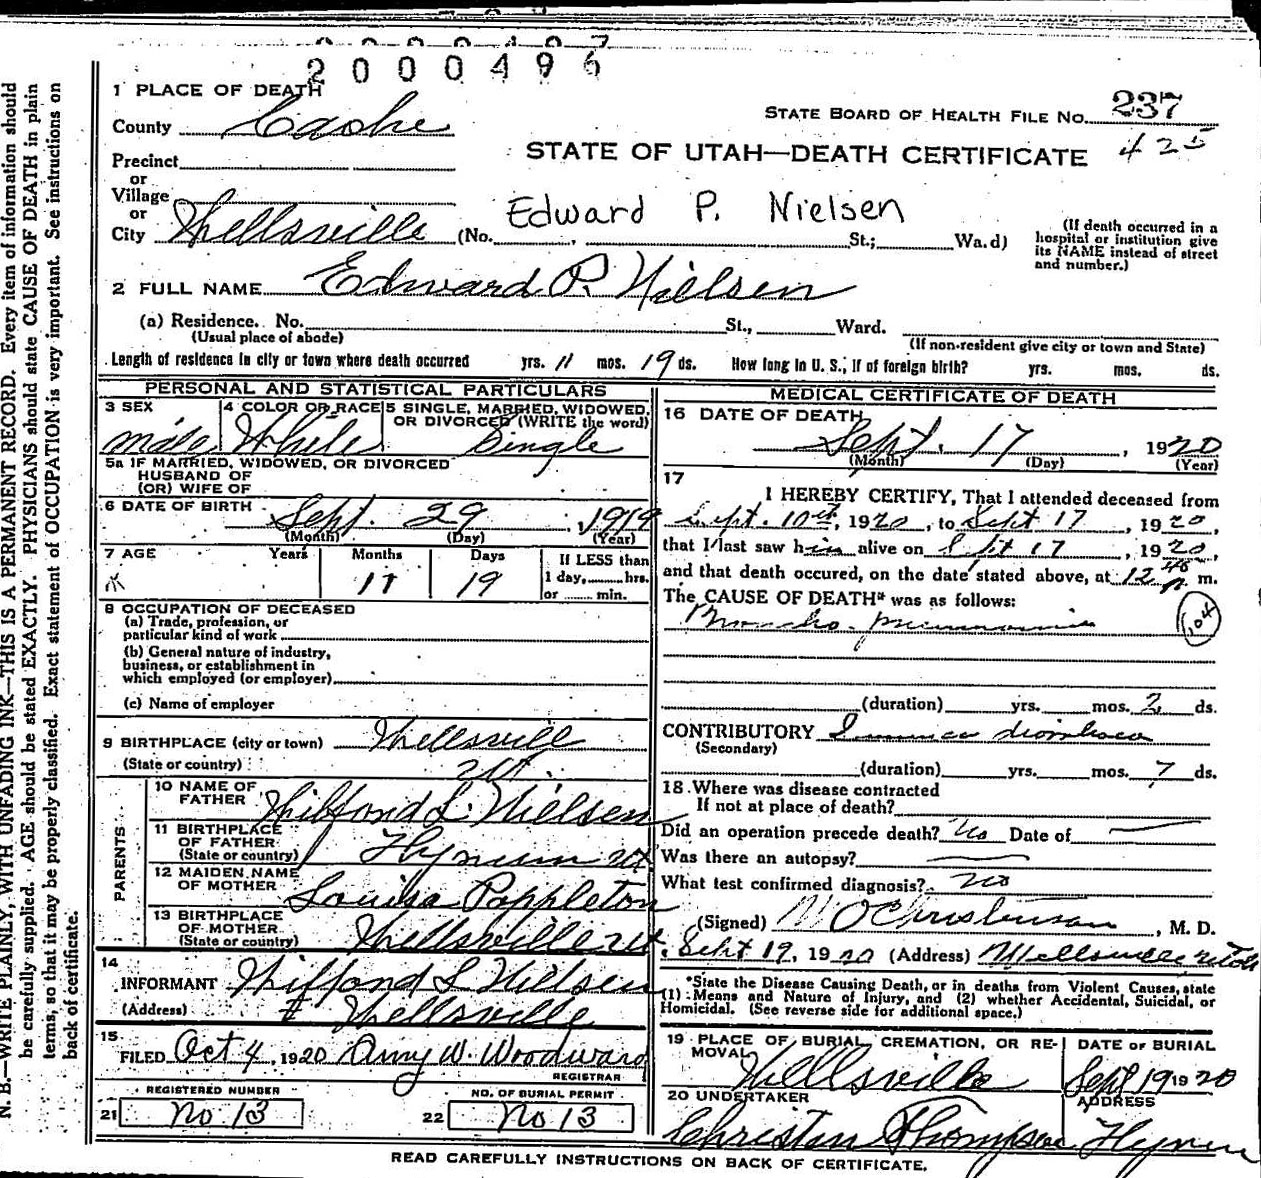 2000496
1 PLACE OF DEATH
County Cache
STATE BOARD OF HEALTH FILE No. 237
425
STATE OF UTAH—DEATH CERTIFICATE
Precinct
or
Village
or
City Wellsville (No. St.; Wa.d)
Edward P. Nielsen
(If death occurred in a hospital or institution give its NAME instead of street and number.)
2 FULL NAME Edward P. Nielsen
(a) Residence. No. St., Ward.
(Usual place of abode) (If non-resident give city or town and State)
Length of residence in city or town where death occurred yrs. 11 mos. 19 ds. How long in U. S., if of foreign birth? yrs. mos. ds.
PERSONAL AND STATISTICAL PARTICULARS
3 SEX male
4 COLOR OR RACE White
5 SINGLE, MARRIED, WIDOWED, OR DIVORCED (WRITE the word) Single
5a IF MARRIED, WIDOWED, OR DIVORCED
HUSBAND OF
(OR) WIFE OF
6 DATE OF BIRTH Sept. 29, 1919
(Month) (Day) (Year)
7 AGE Years Months Days If LESS than
11 19 1 day, hrs.
or min.
8 OCCUPATION OF DECEASED
(a) Trade, profession, or
particular kind of work
(b) General nature of industry,
business, or establishment in
which employed (or employer)
(c) Name of employer
9 BIRTHPLACE (city or town) Wellsvill
(State or country) Ut.
PARENTS
10 NAME OF FATHER Wilford L. Nielsen
11 BIRTHPLACE OF FATHER (State or country) Hyrum Ut.
12 MAIDEN NAME OF MOTHER Louisa Poppleton
13 BIRTHPLACE OF MOTHER (State or country) Wellsville Ut
14
INFORMANT Wilford L Nielsen
(Address) Wellsville
15
FILED Oct 4, 1920 Amy W. Woodward
REGISTRAR
REGISTERED NUMBER
21 No 13
NO. OF BURIAL PERMIT
22 No 13
MEDICAL CERTIFICATE OF DEATH
16 DATE OF DEATH
Sept. 17, 1920
(Month) (Day) (Year)
17
I HEREBY CERTIFY, That I attended deceased from
Sept. 10th, 1920, to Sept 17, 1920,
that I last saw him alive on Sept 17, 1920,
and that death occured, on the date stated above, at 12 45 m.
The CAUSE OF DEATH* was as follows:
Broncho-pneumonia
104
(duration) yrs. mos. 2 ds.
CONTRIBUTORY Summer diarrhoea
(Secondary)
(duration) yrs. mos. 7 ds.
18 Where was disease contracted
If not at place of death?
Did an operation precede death? No Date of
Was there an autopsy?
What test confirmed diagnosis? No
(Signed) Christensen, M. D.
Sept 19, 1920 (Address) Wellsville Utah
*State the Disease Causing Death, or in deaths from Violent Causes, state
(1) Means and Nature of Injury, and (2) whether Accidental, Suicidal, or
Homicidal. (See reverse side for additional space.)
19 PLACE OF BURIAL, CREMATION, OR REMOVAL Wellsville
DATE OF BURIAL Sept 19 1920
20 UNDERTAKER Christian Thompson
ADDRESS Hyrum
READ CAREFULLY INSTRUCTIONS ON BACK OF CERTIFICATE.
N. B.—WRITE PLAINLY, WITH UNFADING INK—THIS IS A PERMANENT RECORD. Every item of information should
be carefully supplied. AGE should be stated EXACTLY. PHYSICIANS should state CAUSE OF DEATH in plain
terms, so that it may be properly classified. Exact statement of OCCUPATION is very important. See instructions on
back of certificate.